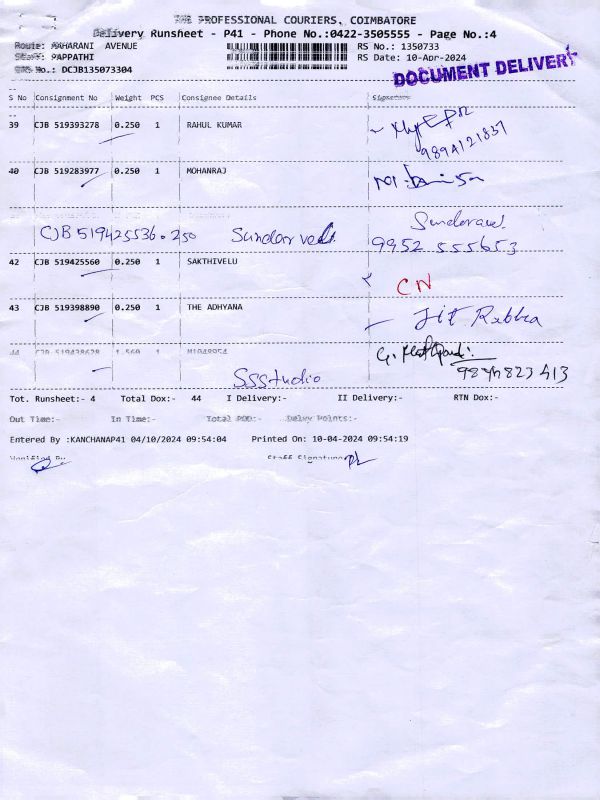 THE PROFESSIONAL COURIERS, COIMBATORE
Delivery Runsheet - P41 - Phone No.:0422-3505555 - Page No.:4
Route: MAHARANI AVENUE
RS No.: 1350733
Staff: PAPPATHI
RS Date: 10-Apr-2024
DRS No.: DCJB135073304
DOCUMENT DELIVERY
S No Consignment No Weight PCS Consignee Details Signature
39 CJB 519393278 0.250 1 RAHUL KUMAR
9894121837
40 CJB 519283977 0.250 1 MOHANRAJ
CJB 519425536.250 Sundarvel Sundaravel
9952 555653
42 CJB 519425560 0.250 1 SAKTHIVELU
CN
43 CJB 519398890 0.250 1 THE ADHYANA
44 CJB 519438628 1.560 1
SSstudio
Tot. Runsheet:- 4 Total Dox:- 44 I Delivery:- II Delivery:- RTN Dox:-
Out Time:- In Time:- Total POD:- Delvy Points:-
Entered By :KANCHANAP41 04/10/2024 09:54:04 Printed On: 10-04-2024 09:54:19
Verified By Staff Signature